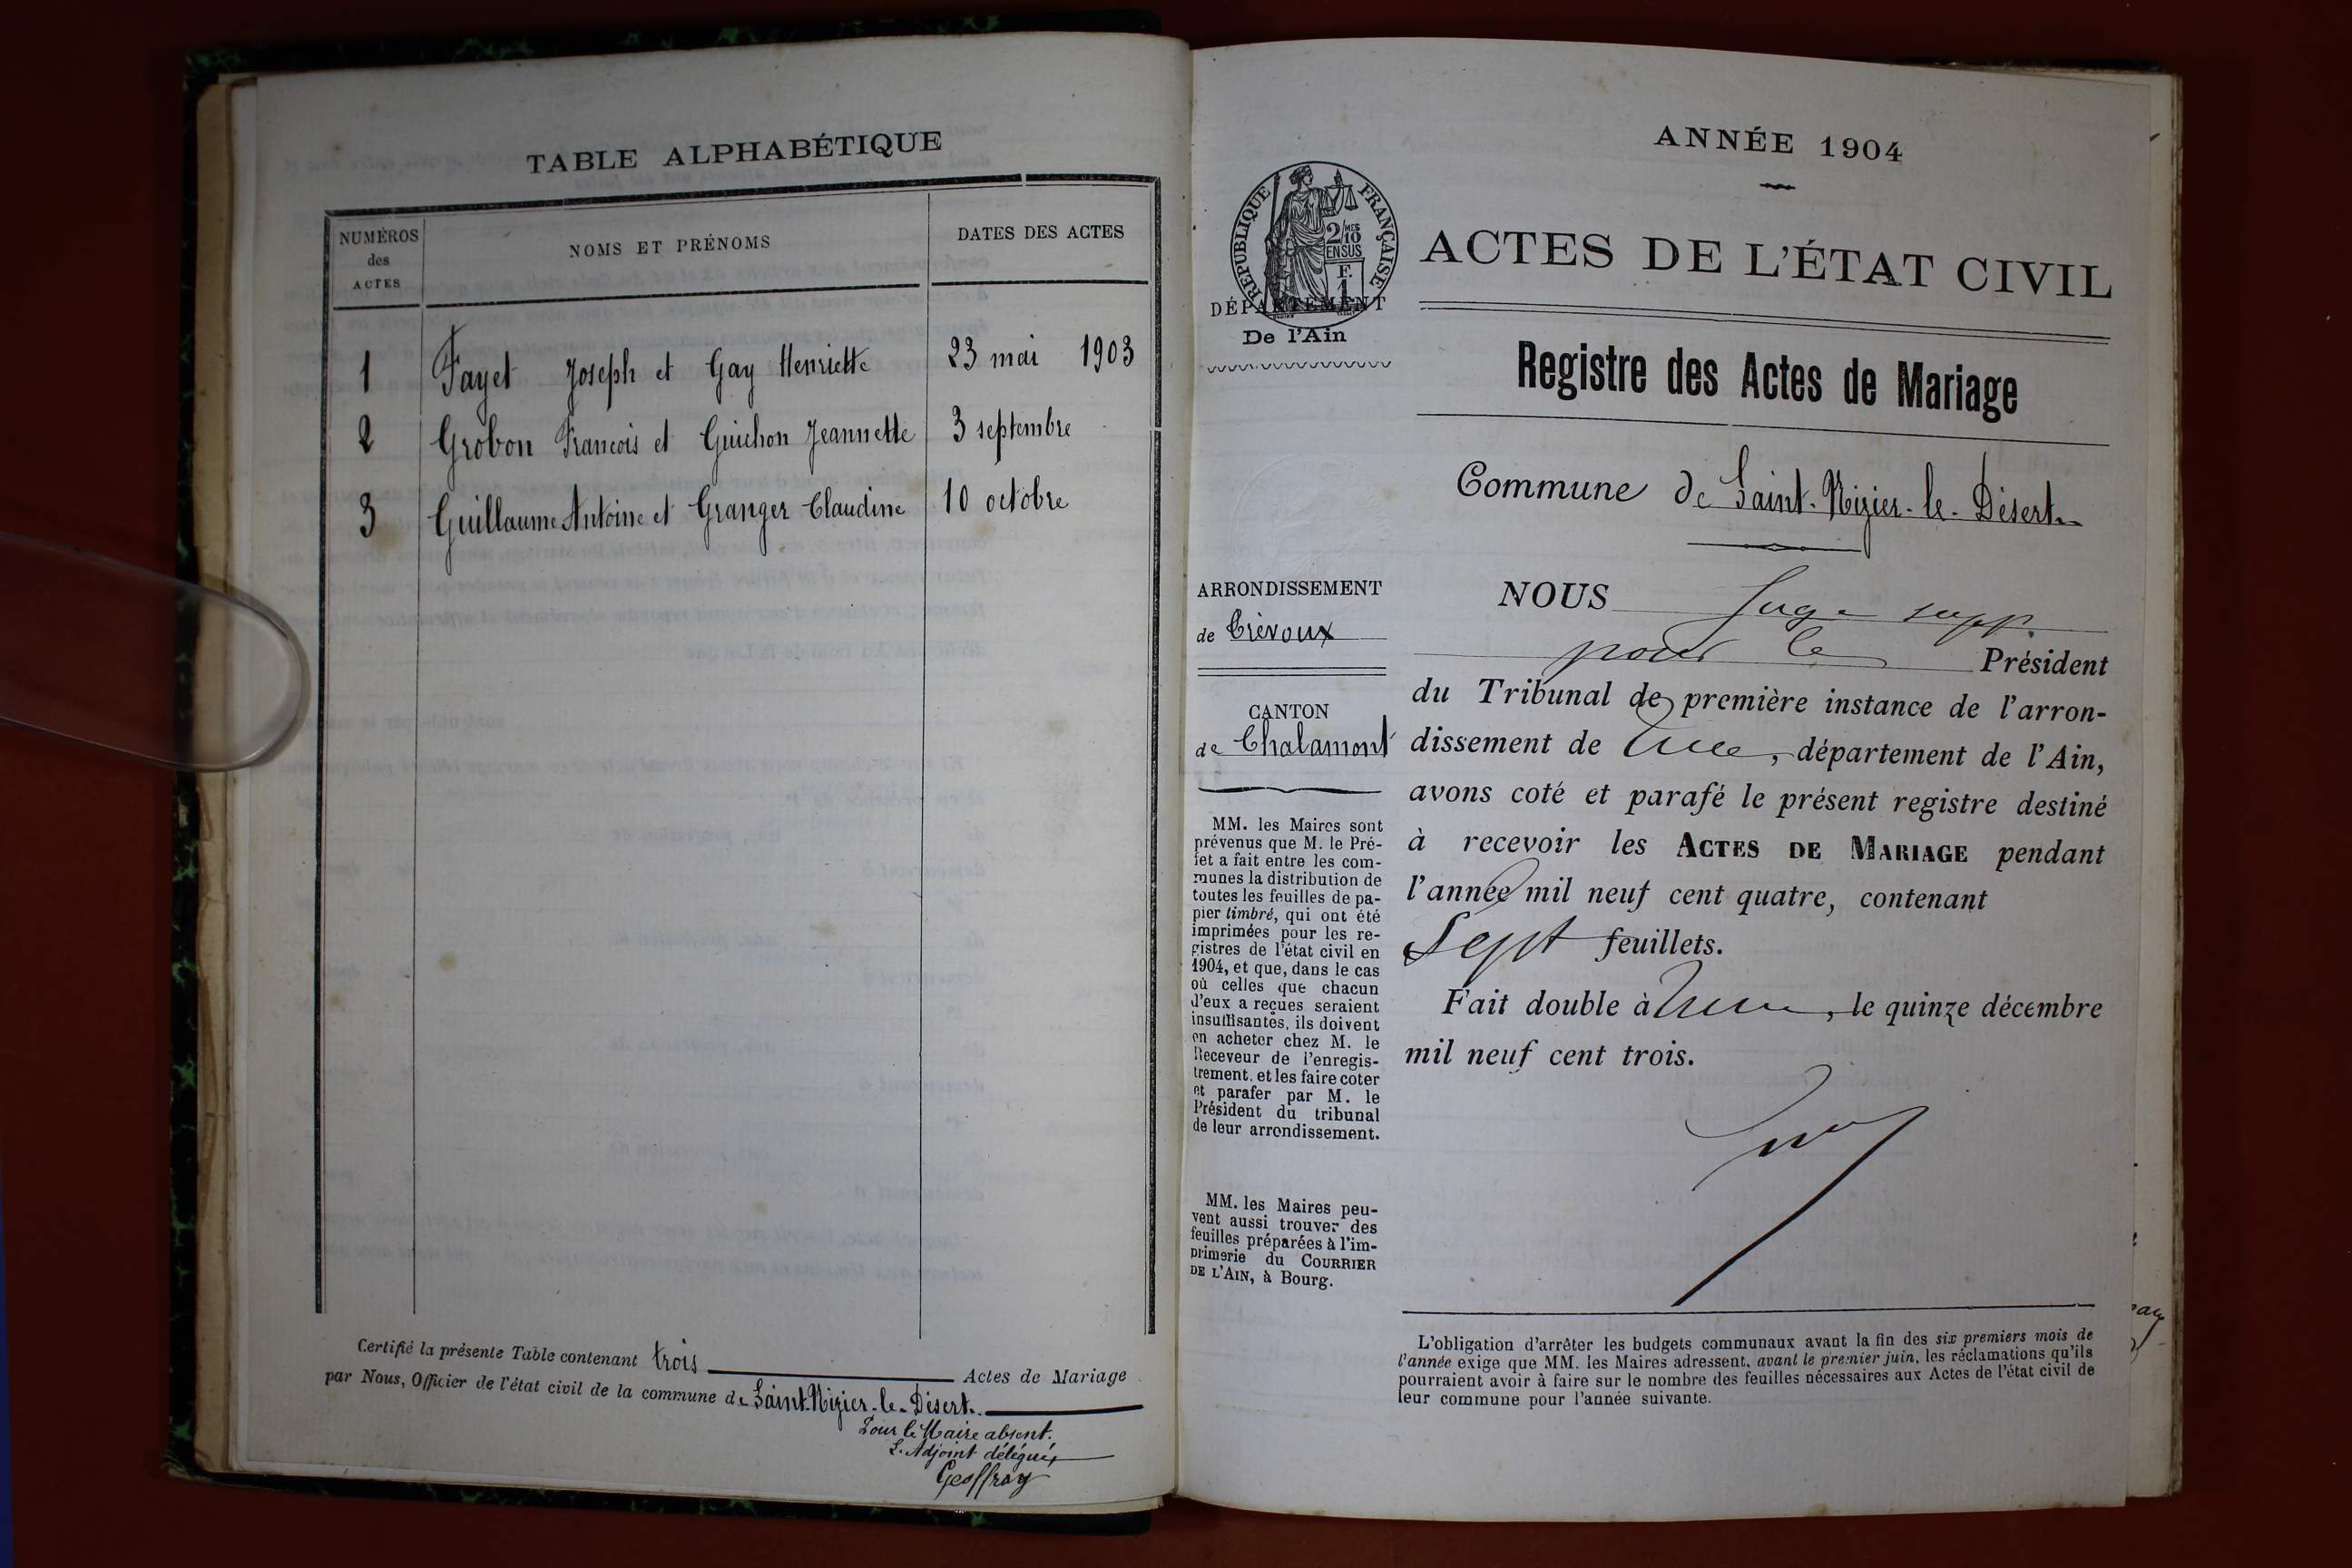 TABLE ALPHABÉTIQUE
NUMÉROS
des
ACTES
NOMS ET PRÉNOMS
DATES DES ACTES
1 Fayet Joseph et Gay Henriette 23 mai 1903
2 Grobon Francois et Guichon Jeannette 3 septembre
3 Guillaume Antoine et Granger Claudine 10 octobre
Certifié la présente Table contenant trois Actes de Mariage
par Nous, Officier de l'état civil de la commune de Saint-Nizier-le-Désert.
Pour le Maire absent.
L'Adjoint délégué,
Geoffray
ANNÉE 1904
RÉPUBLIQUE FRANÇAISE
2/10 MES
EN SUS
F.
1
DÉPARTEMENT
De l'Ain
ACTES DE L'ÉTAT CIVIL
Registre des Actes de Mariage
Commune de Saint-Nizier-le-Désert
ARRONDISSEMENT
de Trévoux
CANTON
de Chalamont
MM. les Maires sont
prévenus que M. le Pré-
fet a fait entre les com-
munes la distribution de
toutes les feuilles de pa-
pier timbré, qui ont été
imprimées pour les re-
gistres de l'état civil en
1904, et que, dans le cas
où celles que chacun
d'eux a reçues seraient
insuffisantes, ils doivent
en acheter chez M. le
Receveur de l'enregis-
trement, et les faire coter
et parafer par M. le
Président du tribunal
de leur arrondissement.
MM. les Maires peu-
vent aussi trouver des
feuilles préparées à l'im-
primerie du COURRIER
DE L'AIN, à Bourg.
NOUS Juge supp.
pour le Président
du Tribunal de première instance de l'arron-
dissement de , département de l'Ain,
avons coté et parafé le présent registre destiné
à recevoir les ACTES DE MARIAGE pendant
l'année mil neuf cent quatre, contenant
Sept feuillets.
Fait double à , le quinze décembre
mil neuf cent trois.
L'obligation d'arrêter les budgets communaux avant la fin des six premiers mois de
l'année exige que MM. les Maires adressent, avant le premier juin, les réclamations qu'ils
pourraient avoir à faire sur le nombre des feuilles nécessaires aux Actes de l'état civil de
leur commune pour l'année suivante.